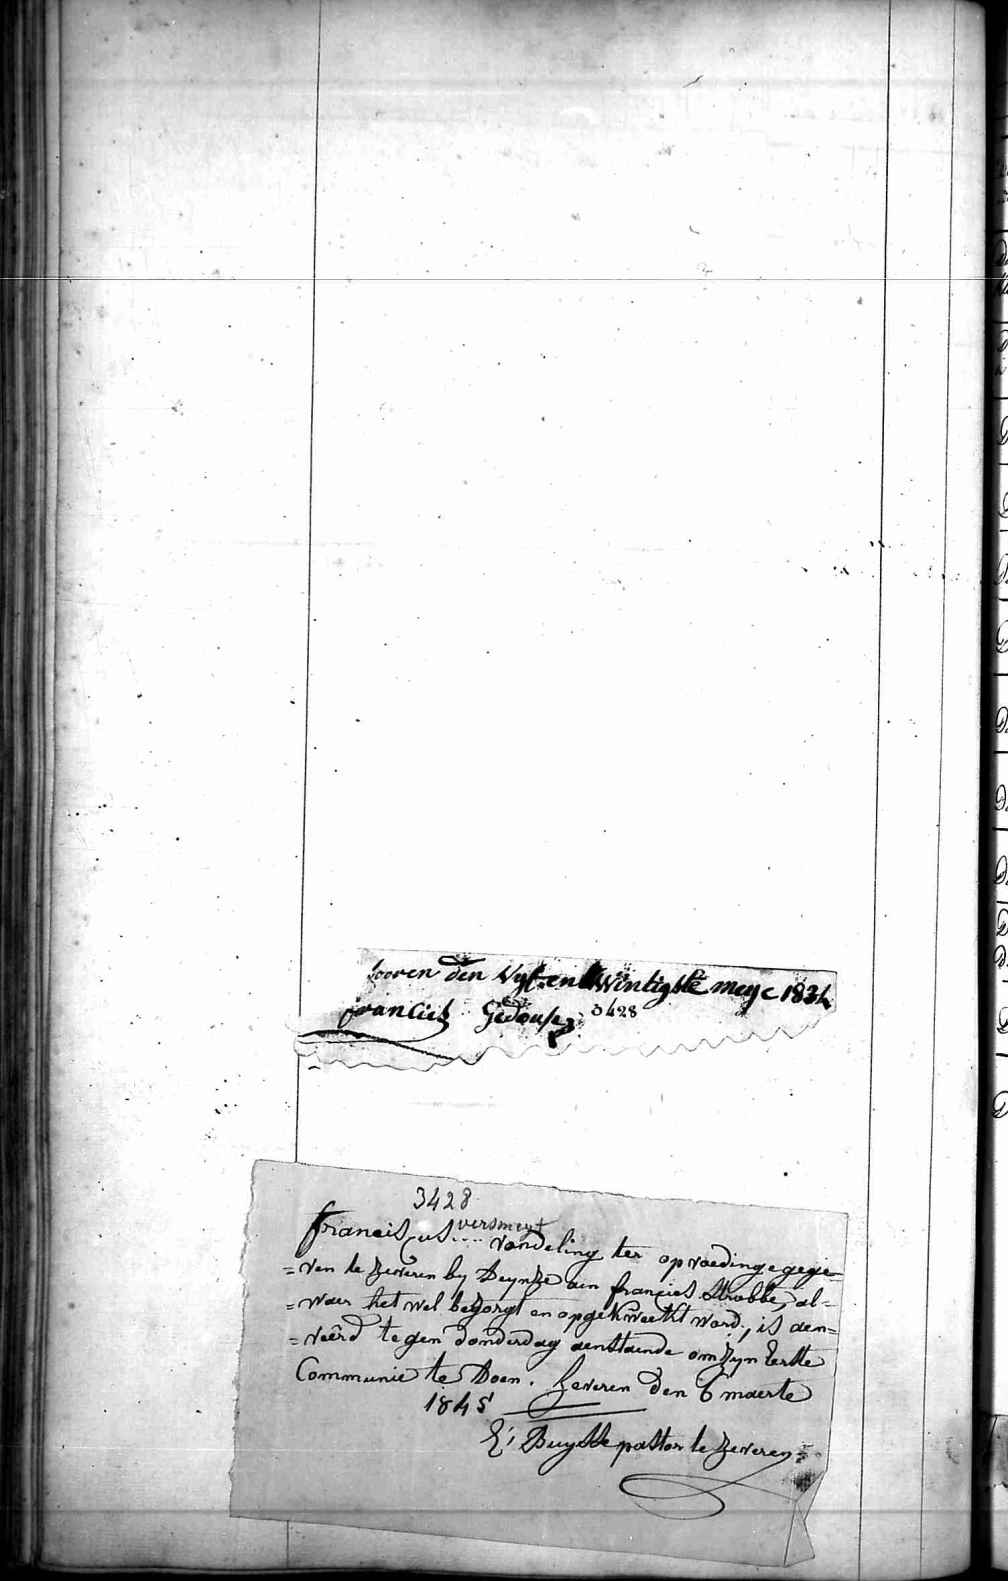 booren den Vyf en twintigste meye 1834
francies Gedousez 3428
3428
versmeyt
francis cus .... vondeling ter opvoedinge gege=
=ven te Zeveren by Deynze aen francies Strobbe, al=
=waer het wel bezorgt en opgekweekt word, is aen=
=veêrd tegen donderdag aenstaende om zyn Eerste
Communie te Doen. Zeveren den 6 maerte
1845
Buysse pastor te Zeveren